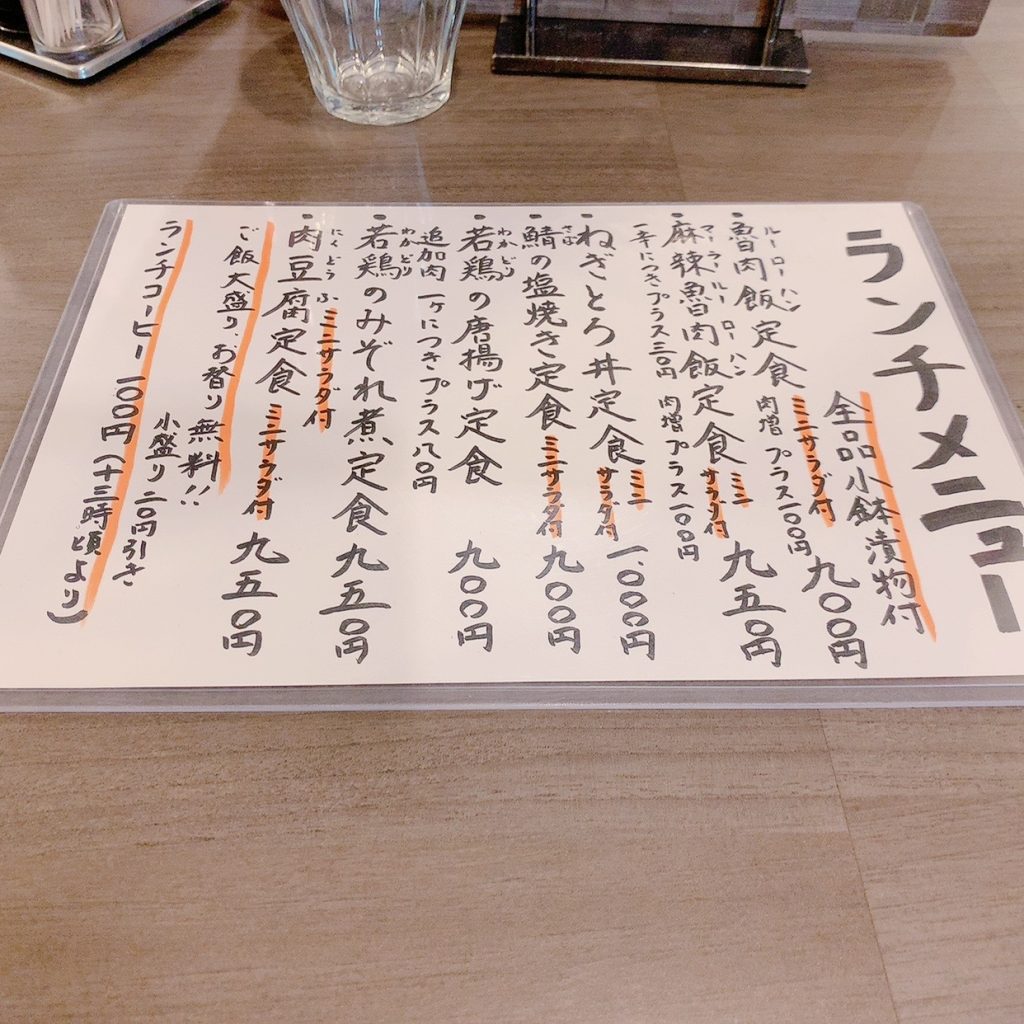 ランチメニュー
全品小鉢漬物付
・魯肉飯定食 ミニサラダ付 九〇〇円
ルーローハン
肉増プラス一〇〇円
・麻辣魯肉飯定食 ミニサラダ付 九五〇円
マーラールーローハン
一辛につきプラス三〇円 肉増プラス一〇〇円
・ねぎとろ丼定食 ミニサラダ付 一、〇〇〇円
・鯖の塩焼き定食 ミニサラダ付 九〇〇円
さば
・若鶏の唐揚げ定食 九〇〇円
わかどり
追加肉一ケにつきプラス八〇円
・若鶏のみぞれ煮定食 九五〇円
わかどり
ミニサラダ付
・肉豆腐定食 ミニサラダ付 九五〇円
にくどうふ
ご飯大盛り、お替り無料!!
小盛り二〇円引き
ランチコーヒー一〇〇円(十三時頃より)